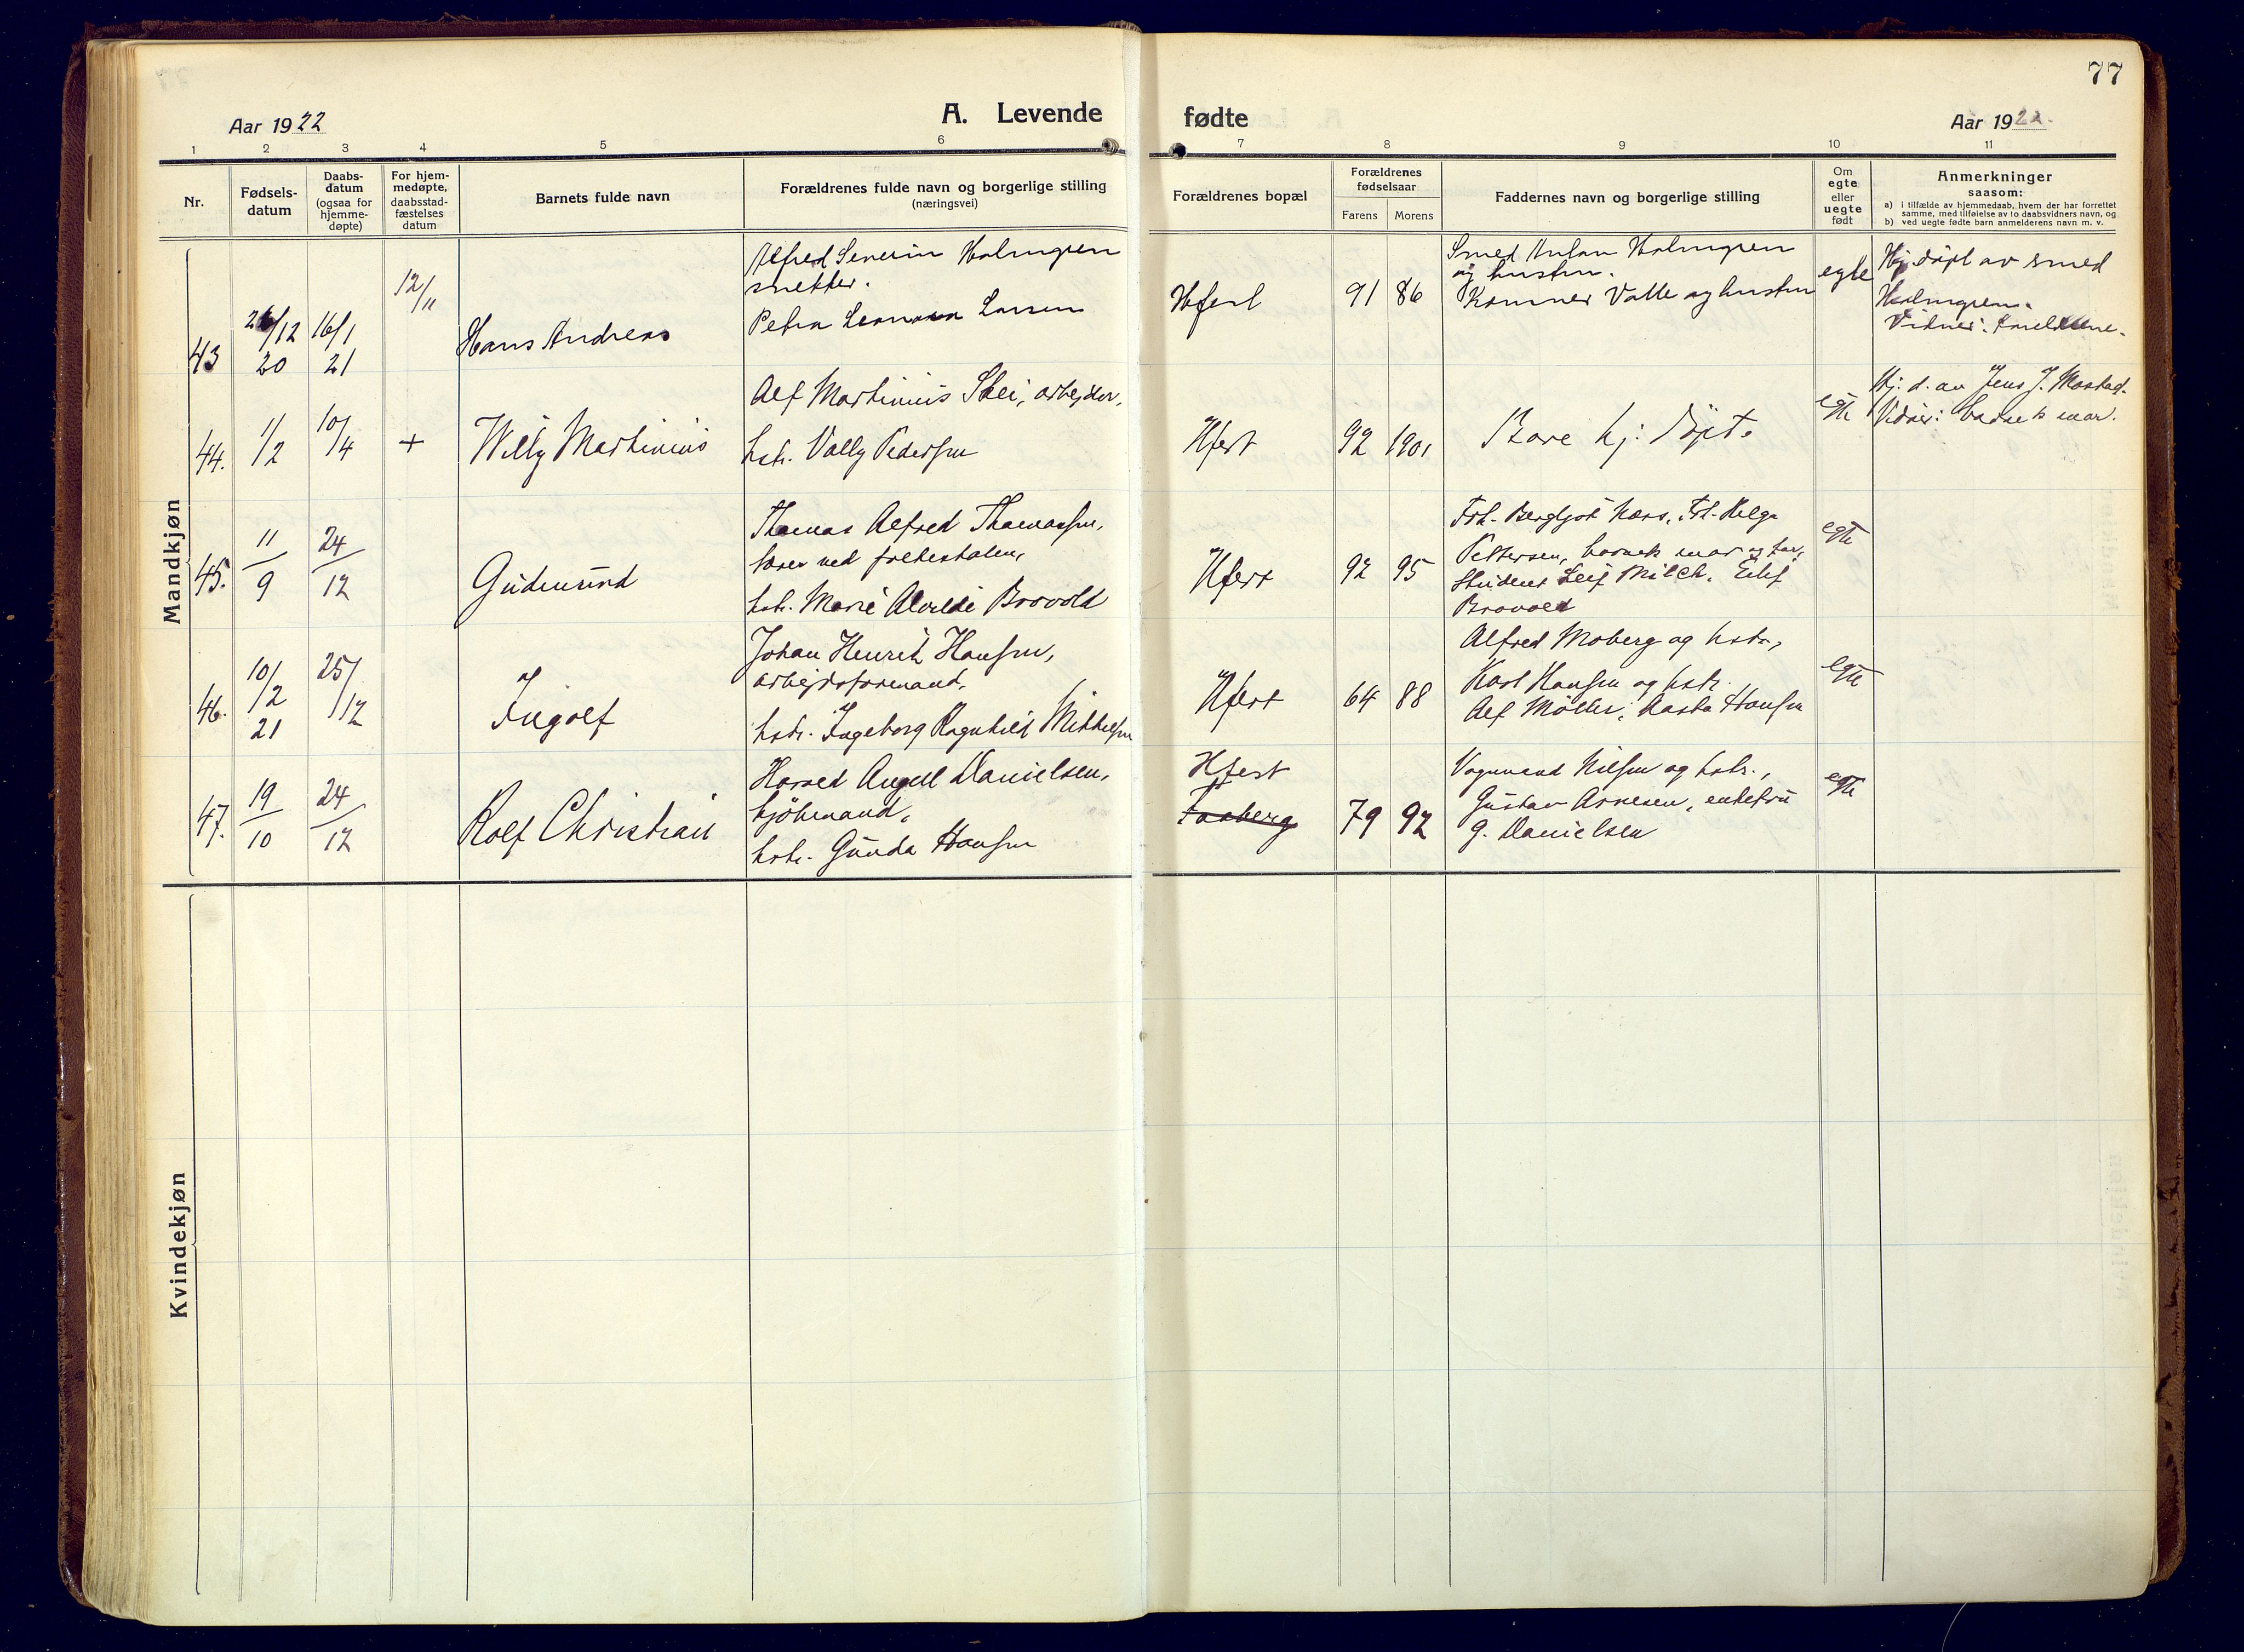 77
Aar 1922
A. Levende fødte
Aar 1922.
1 2 3 4 5 6 7 8 9 10 11
Nr.
Fødsels-
datum
Daabs-
datum
(ogsaa for
hjemme-
døpte)
For hjem-
medøpte,
daabsstad-
fæstelses
datum
Barnets fulde navn
Forældrenes fulde navn og borgerlige stilling
(næringsvei)
Forældrenes bopæl
Forældrenes
fødselsaar
Farens Morens
Faddernes navn og borgerlige stilling
Om
egte
eller
uegte
født
Anmerkninger
saasom:
a) i tilfælde av hjemmedaab, hvem der har forrettet
samme, med tilføielse av to daabsvidners navn, og
b) ved uegte fødte barn anmelderens navn m. v.
Mandkjøn
43
26/12
20
16/1
21
12/11
Hans Andreas
Alfred Severin Holmgren
snekker.
Petra Leonora Larsen
Hfest
91 86
Smed Anton Holmgren
og hustru.
Kæmner Valle og hustru
egte
Hj. døpt av smed
Holmgren.
Vidner: Foreldrene.
44.
1/2
10/4
+
Willy Martinius
Alf Martinius Skei, arbejder,
hstr. Vally Pedersen
Hfest
92 1901
Bare hj. døpt.
egte
Hj. d. av Jens J. Mostad.
Vidner: barnets mor.
45.
11/9
24/12
Gudmund
Thomas Alfred Thomassen,
lærer ved folkeskolen,
hstr. Marie Alvilde Brovold
Hfest
92 95
Frk. Bergljot Næss, Frk. Helga
Pettersen, barnets mor og far,
Student Leif Milch, Eilif
Brovold
egte
46.
10/2
21
25/12
Ingolf
Johan Henrik Hansen,
arbejdsformand,
hstr. Ingeborg Ragnhild Mikkelsen
Hfest
64 88
Alfred Moberg og hstr.,
Karl Hansen og hstr.
Alf Möller, Aasta Hansen
egte
47.
19/10
24/12
Rolf Christian
Harald August Danielsen,
kjøbmand,
hstr. Gunda Hansen
Hfest
79 92
Vognmand Nilsen og hstr.,
Gustav Arnesen, enkefru
G. Danielsen
egte
Kvindekjøn